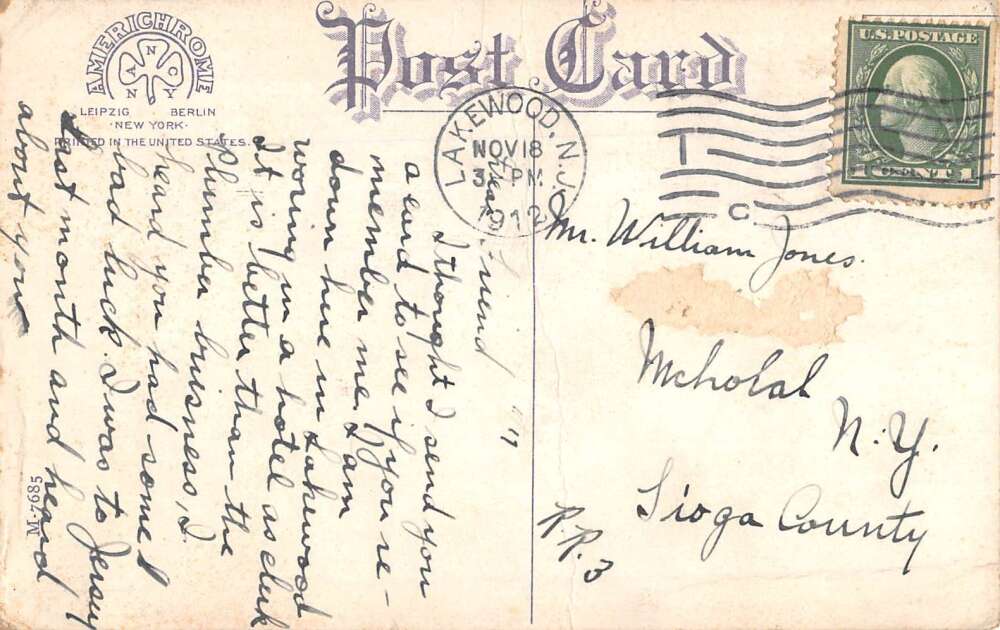 AMERICHROME
A N C O
N N Y
LEIPZIG BERLIN
·NEW YORK·
PRINTED IN THE UNITED STATES.
Post Card
LAKEWOOD, N.J.
NOV 18
3 PM
1912
U.S. POSTAGE
1 CENT 1
T
C
Mr. William Jones.
Nichols
N.Y.
Tioga County
R.R. 3
Dear Friend
I thought I send you
a card to see if you re-
member me. I am
down here in Lakewood
working in a hotel as clerk
It is better than the
Slumber buisness, I
heard you had some
bad luck. I was to Jersey
last month and heard
about you
M-7685